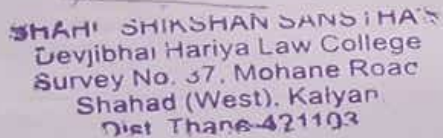 SHAHI SHIKSHAN SANSTHA'S
Devjibhai Hariya Law College
Survey No. 37, Mohane Road
Shahad (West), Kalyan
Dist Thane-421103